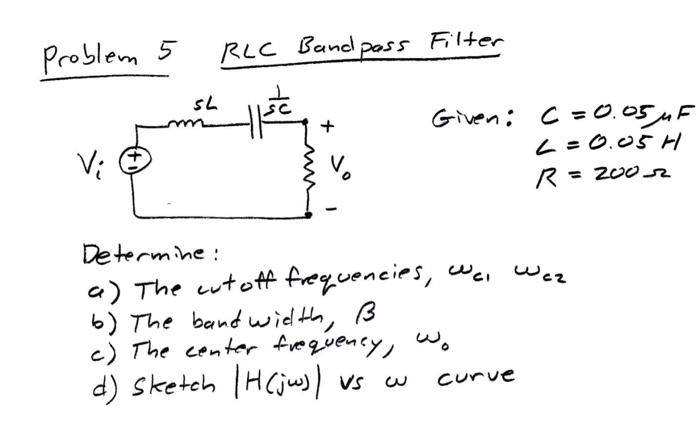 Problem 5 RLC Bandpass Filter
sL 1/sC
Given: C = 0.05 μF
L = 0.05 H
R = 200 Ω
Vi + - + Vo -
Determine:
a) The cutoff frequencies, ωc1 ωc2
b) The bandwidth, β
c) The center frequency, ω0
d) Sketch |H(jω)| vs ω curve